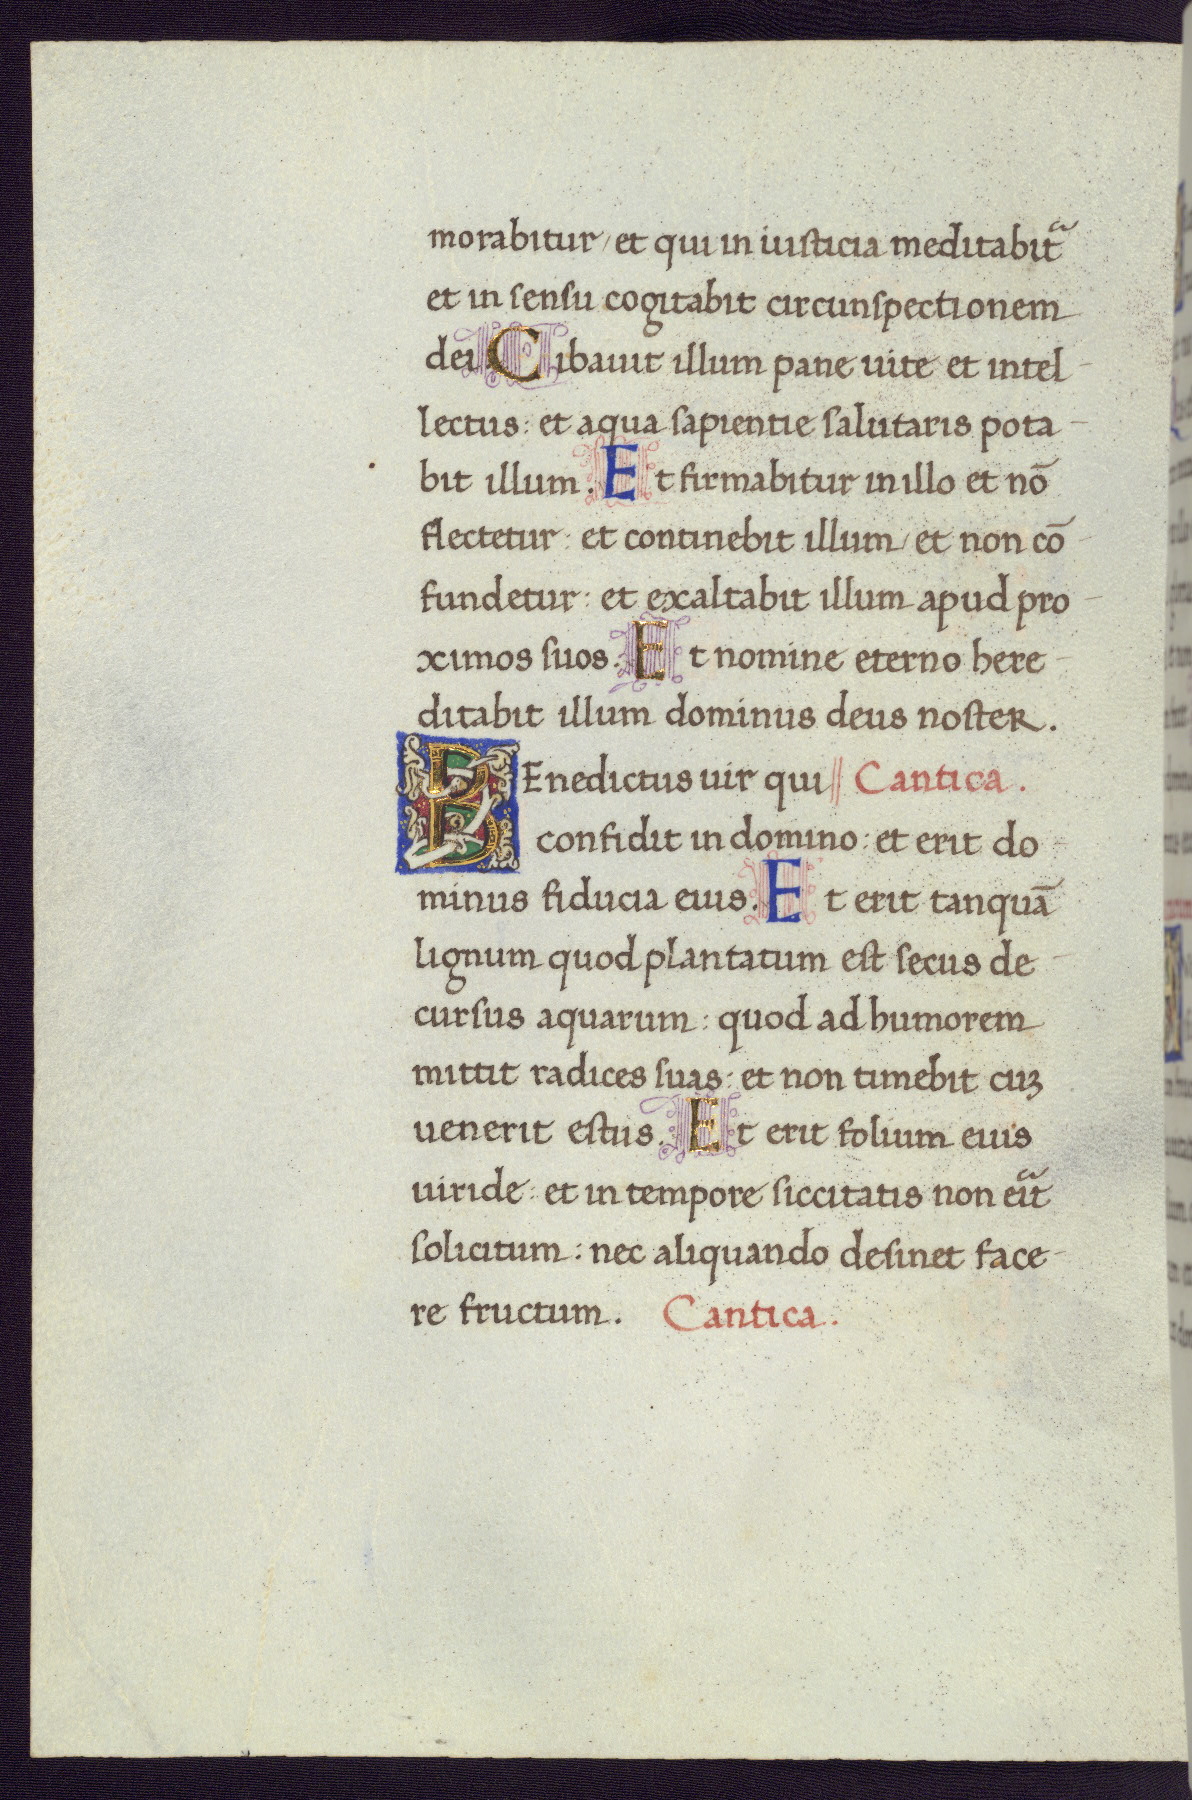 morabitur / et qui in iusticia meditabitᷓ
et in sensu cogitabit circunspectionem
dei Cibauit illum pane uite et intel-
lectus : et aqua sapientie salutaris pota-
bit illum . Et firmabitur in illo et nō
flectetur : et continebit illum / et non cō-
fundetur : et exaltabit illum apud pro-
ximos suos . Et nomine eterno here-
ditabit illum dominus deus noster .
BEnedictus uir qui // Cantica .
confidit in domino : et erit do-
minus fiducia eius . Et erit tanquā
lignum quod plantatum est secus de-
cursus aquarum : quod ad humorem
mittit radices suas : et non timebit cuꝫ
uenerit estus . Et erit folium eius
uiride : et in tempore siccitatis non eitᷓ
solicitum : nec aliquando desinet face-
re fructum . Cantica .